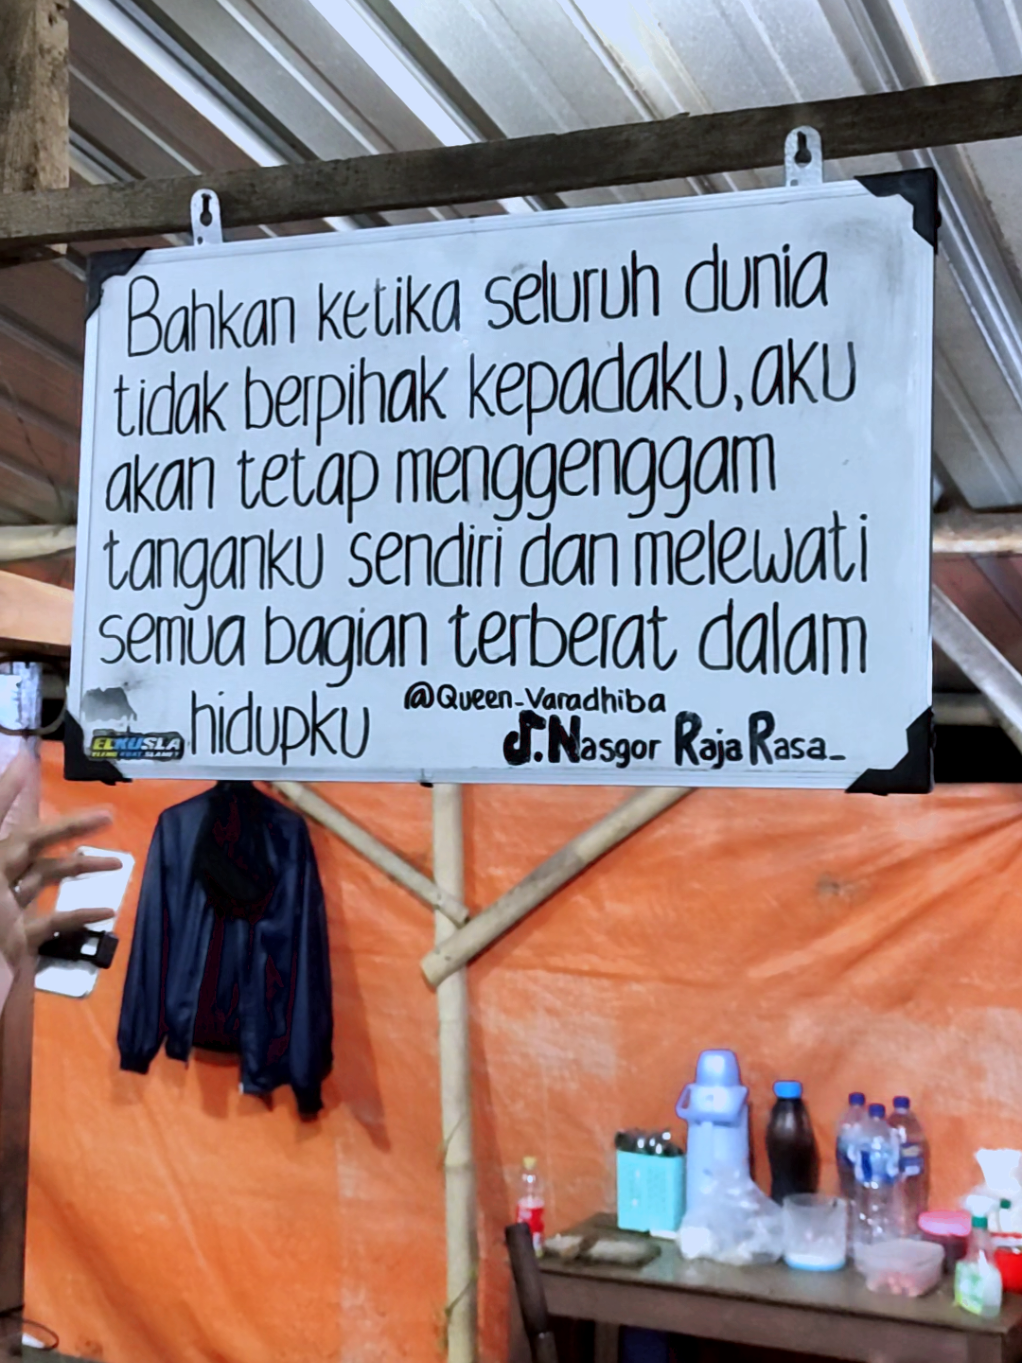 Bahkan ketika seluruh dunia
tidak berpihak kepadaku, aku
akan tetap menggenggam
tanganku sendiri dan melewati
semua bagian terberat dalam
hidupku
@Queen_Varadhiba
J.Nasgor Raja Rasa_
ELKUSLA